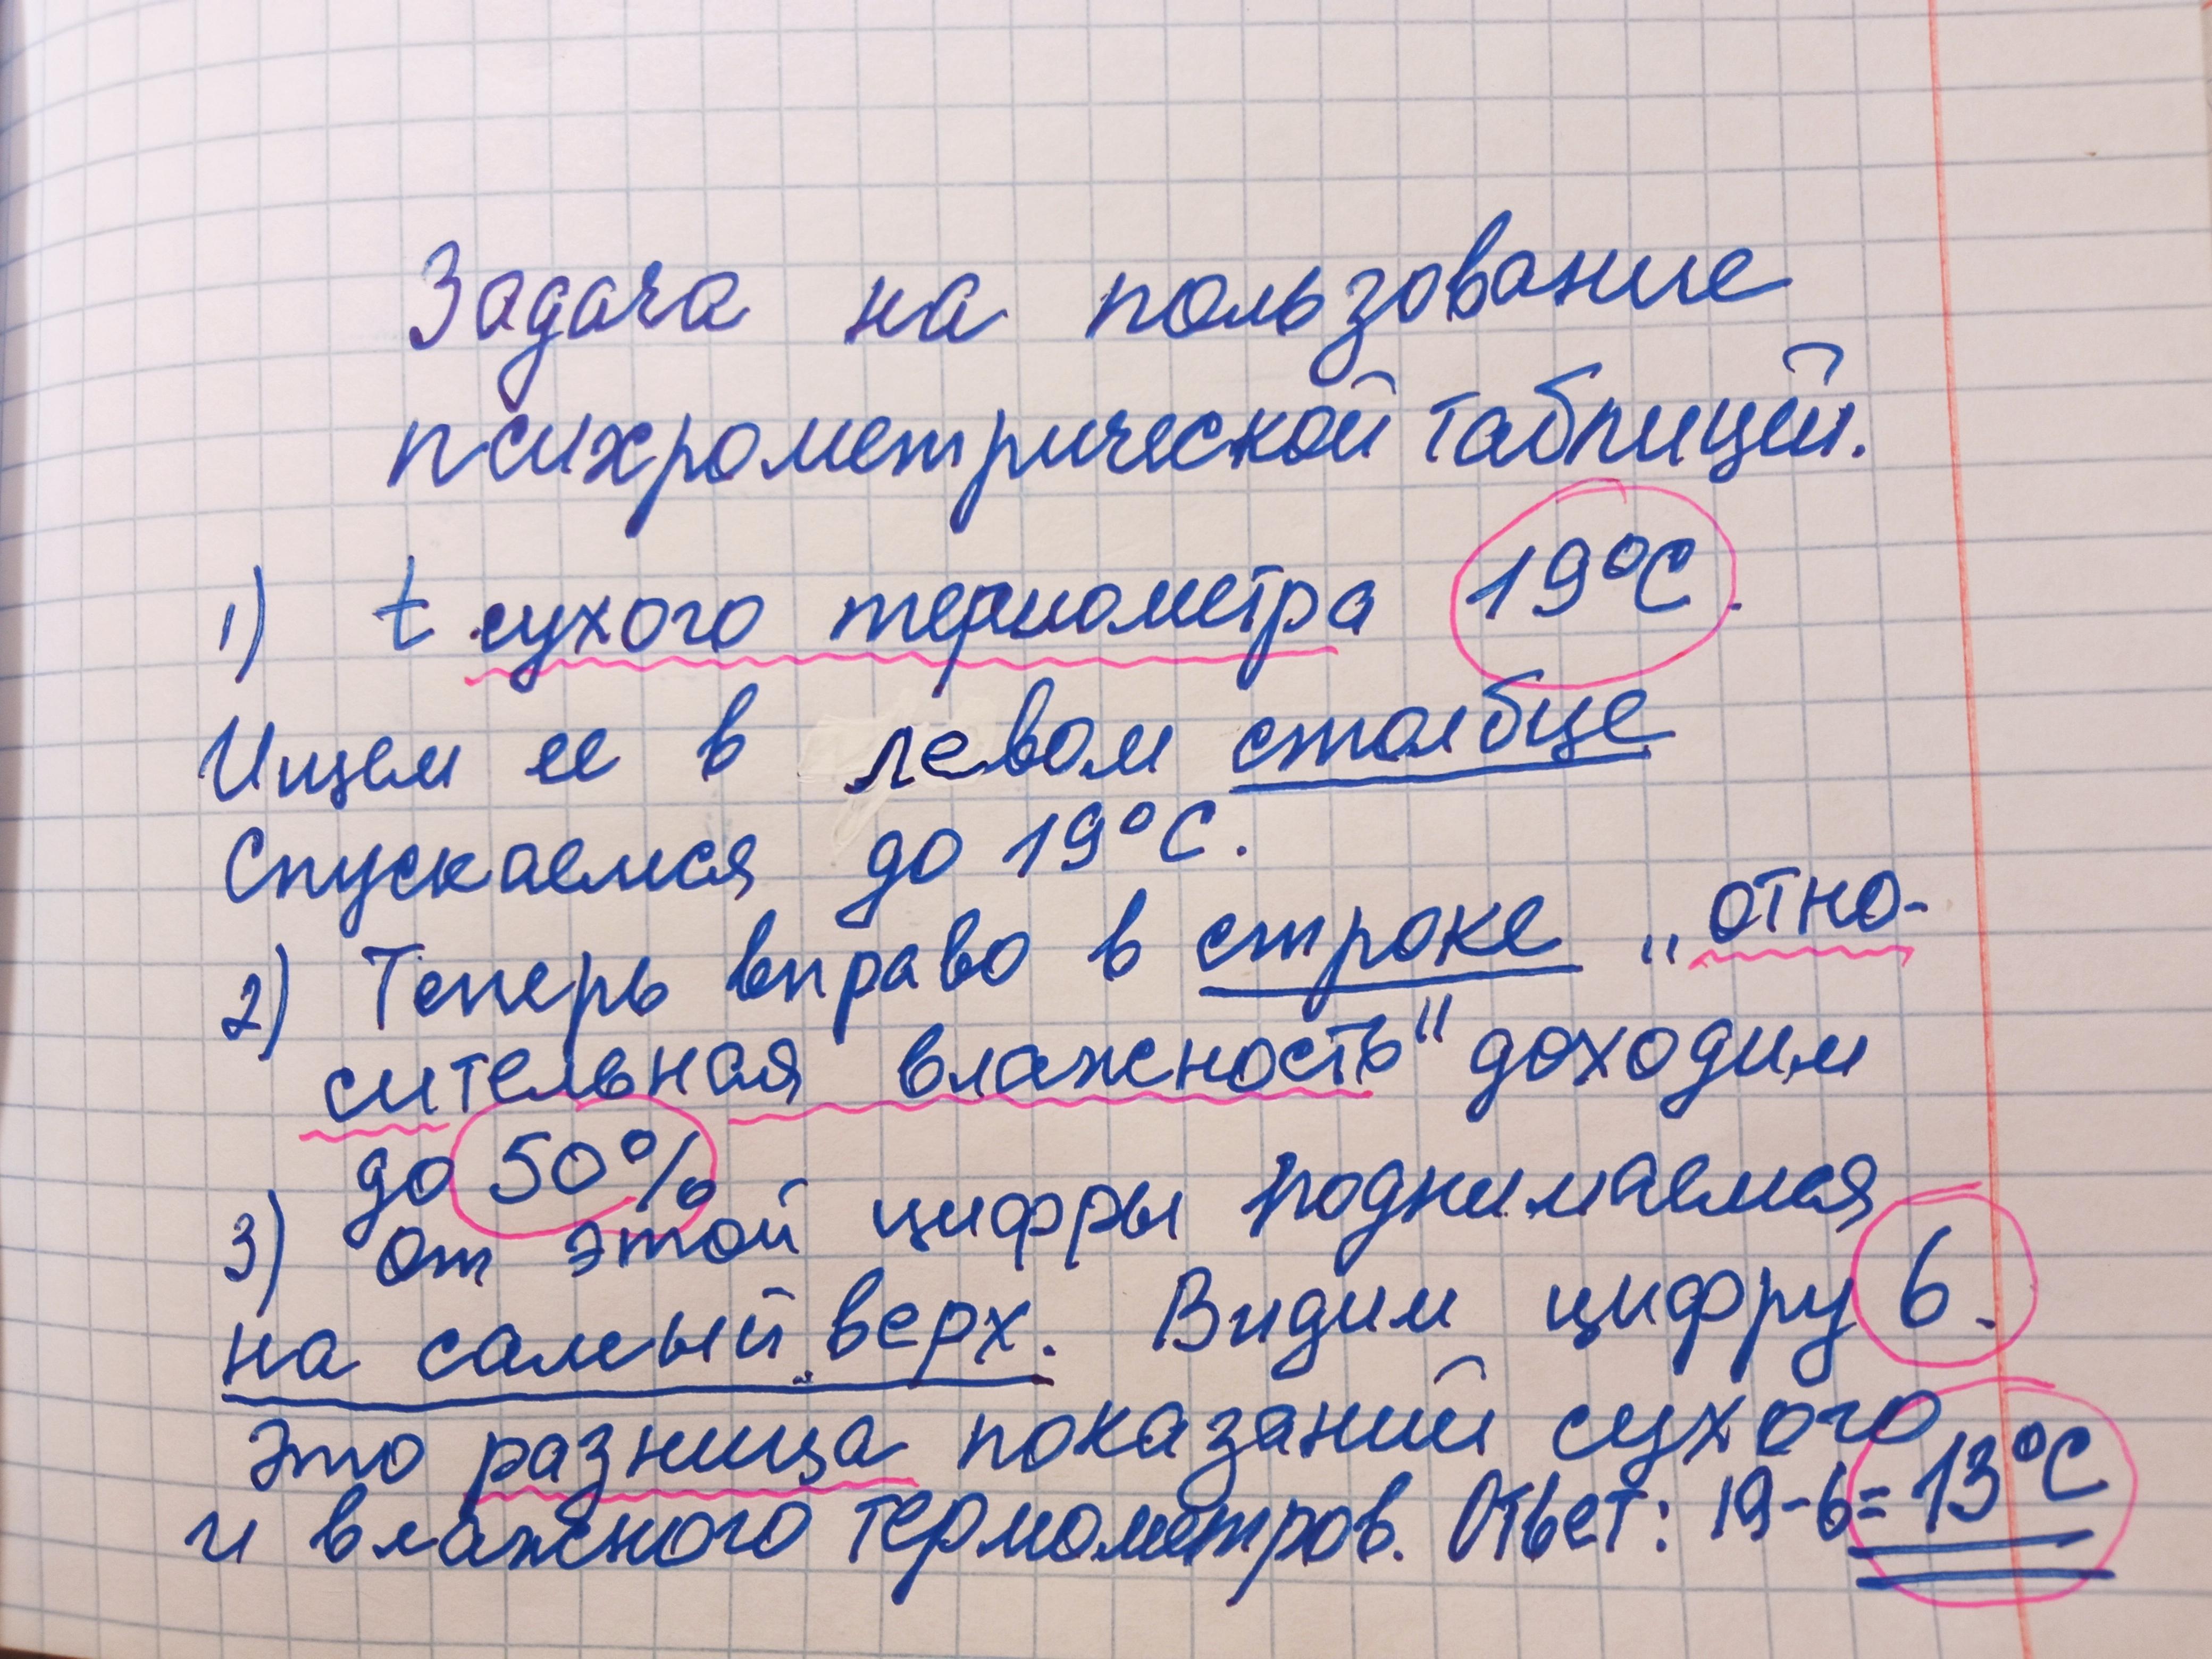 Задача на пользование
психрометрической таблицей.
1) t сухого термометра 19°C.
Ищем ее в левом столбце
Спускаемся до 19°C.
2) Теперь вправо в строке „отно-
сительная влажность" доходим
до 50%
3) от этой цифры поднимаемся
на самый верх. Видим цифру 6.
Это разница показаний сухого
и влажного термометров. Ответ: 19-6=13°C